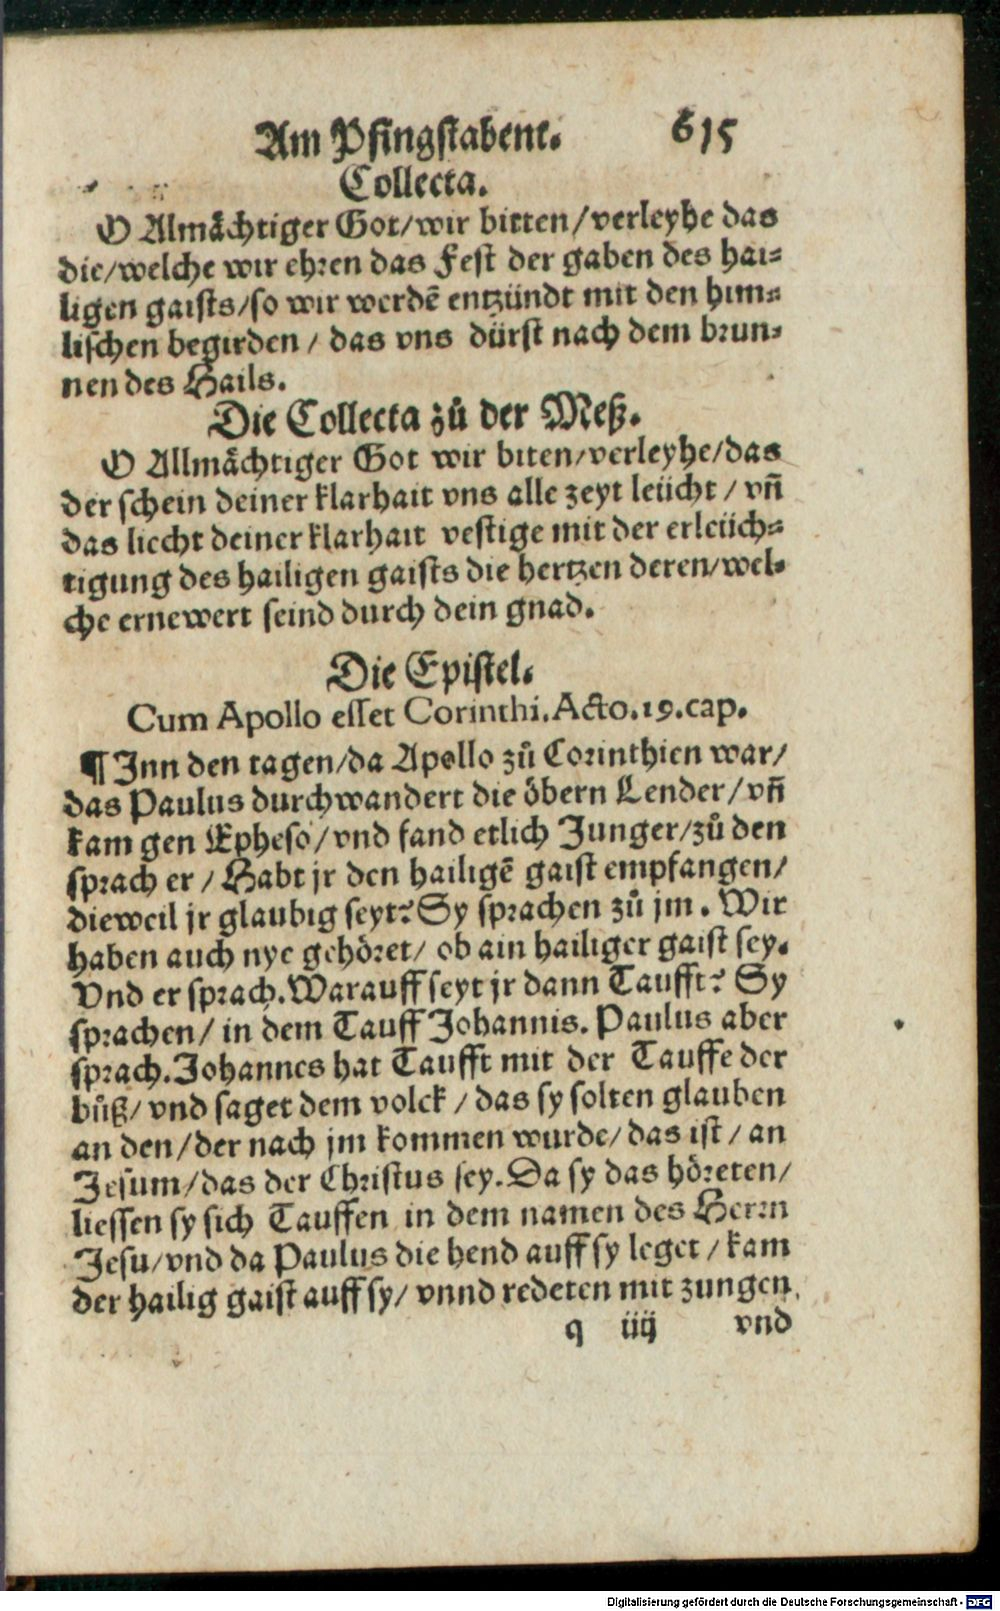 Am Pfingstabent. 615
Collecta.
O Almåchtiger Got/wir bitten/verleyhe das
die/welche wir ehren das Fest der gaben des hai⸗
ligen gaists/so wir werdẽ entzündt mit den him⸗
lischen begirden / das vns dürst nach dem brun⸗
nen des Hails.
Die Collecta zů der Meß.
O Allmåchtiger Got wir biten/verleyhe/das
der schein deiner klarhait vns alle zeyt leücht / vñ
das liecht deiner klarhait vestige mit der erleüch⸗
tigung des hailigen gaists die hertzen deren/wel⸗
che ernewert seind durch dein gnad.
Die Epistel.
Cum Apollo esset Corinthi. Acto.19.cap.
¶ Inn den tagen/da Apollo zů Corinthien war/
das Paulus durchwandert die öbern Lender/vñ
kam gen Epheso/vnd fand etlich Junger/zů den
sprach er / Habt jr den hailigẽ gaist empfangen/
dieweil jr glaubig seyt? Sy sprachen zů jm. Wir
haben auch nye gehöret/ ob ain hailiger gaist sey.
Vnd er sprach. Warauff seyt jr dann Taufft? Sy
sprachen/ in dem Tauff Johannis. Paulus aber
sprach. Johannes hat Taufft mit der Tauffe der
bůß/ vnd saget dem volck / das sy solten glauben
an den/der nach jm kommen wurde/das ist/an
Jesum/das der Christus sey. Da sy das höreten/
liessen sy sich Tauffen in dem namen des Herrn
Jesu/vnd da Paulus die hend auff sy leget/kam
der hailig gaist auff sy/ vnnd redeten mit zungen
q iiij vnd
Digitalisierung gefördert durch die Deutsche Forschungsgemeinschaft - DFG